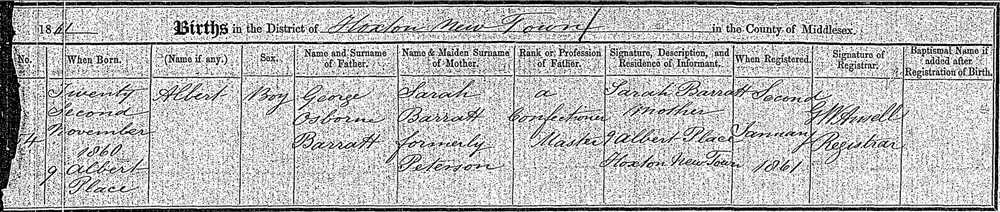 1861 Births in the District of Hoxton New Town in the County of Middlesex.
No. When Born. (Name if any.) Sex. Name and Surname of Father. Name & Maiden Surname of Mother. Rank or Profession of Father. Signature, Description, and Residence of Informant. When Registered. Signature of Registrar. Baptismal Name if added after Registration of Birth.
Twenty Albert Boy George Sarah a Sarah Barratt Second
Second Osborne Barratt Confectioner Mother G.W. Ansell
4 November Barratt formerly Master 9 Albert Place January Registrar
1860 Peterson Hoxton New Town 1861
9 Albert
Place